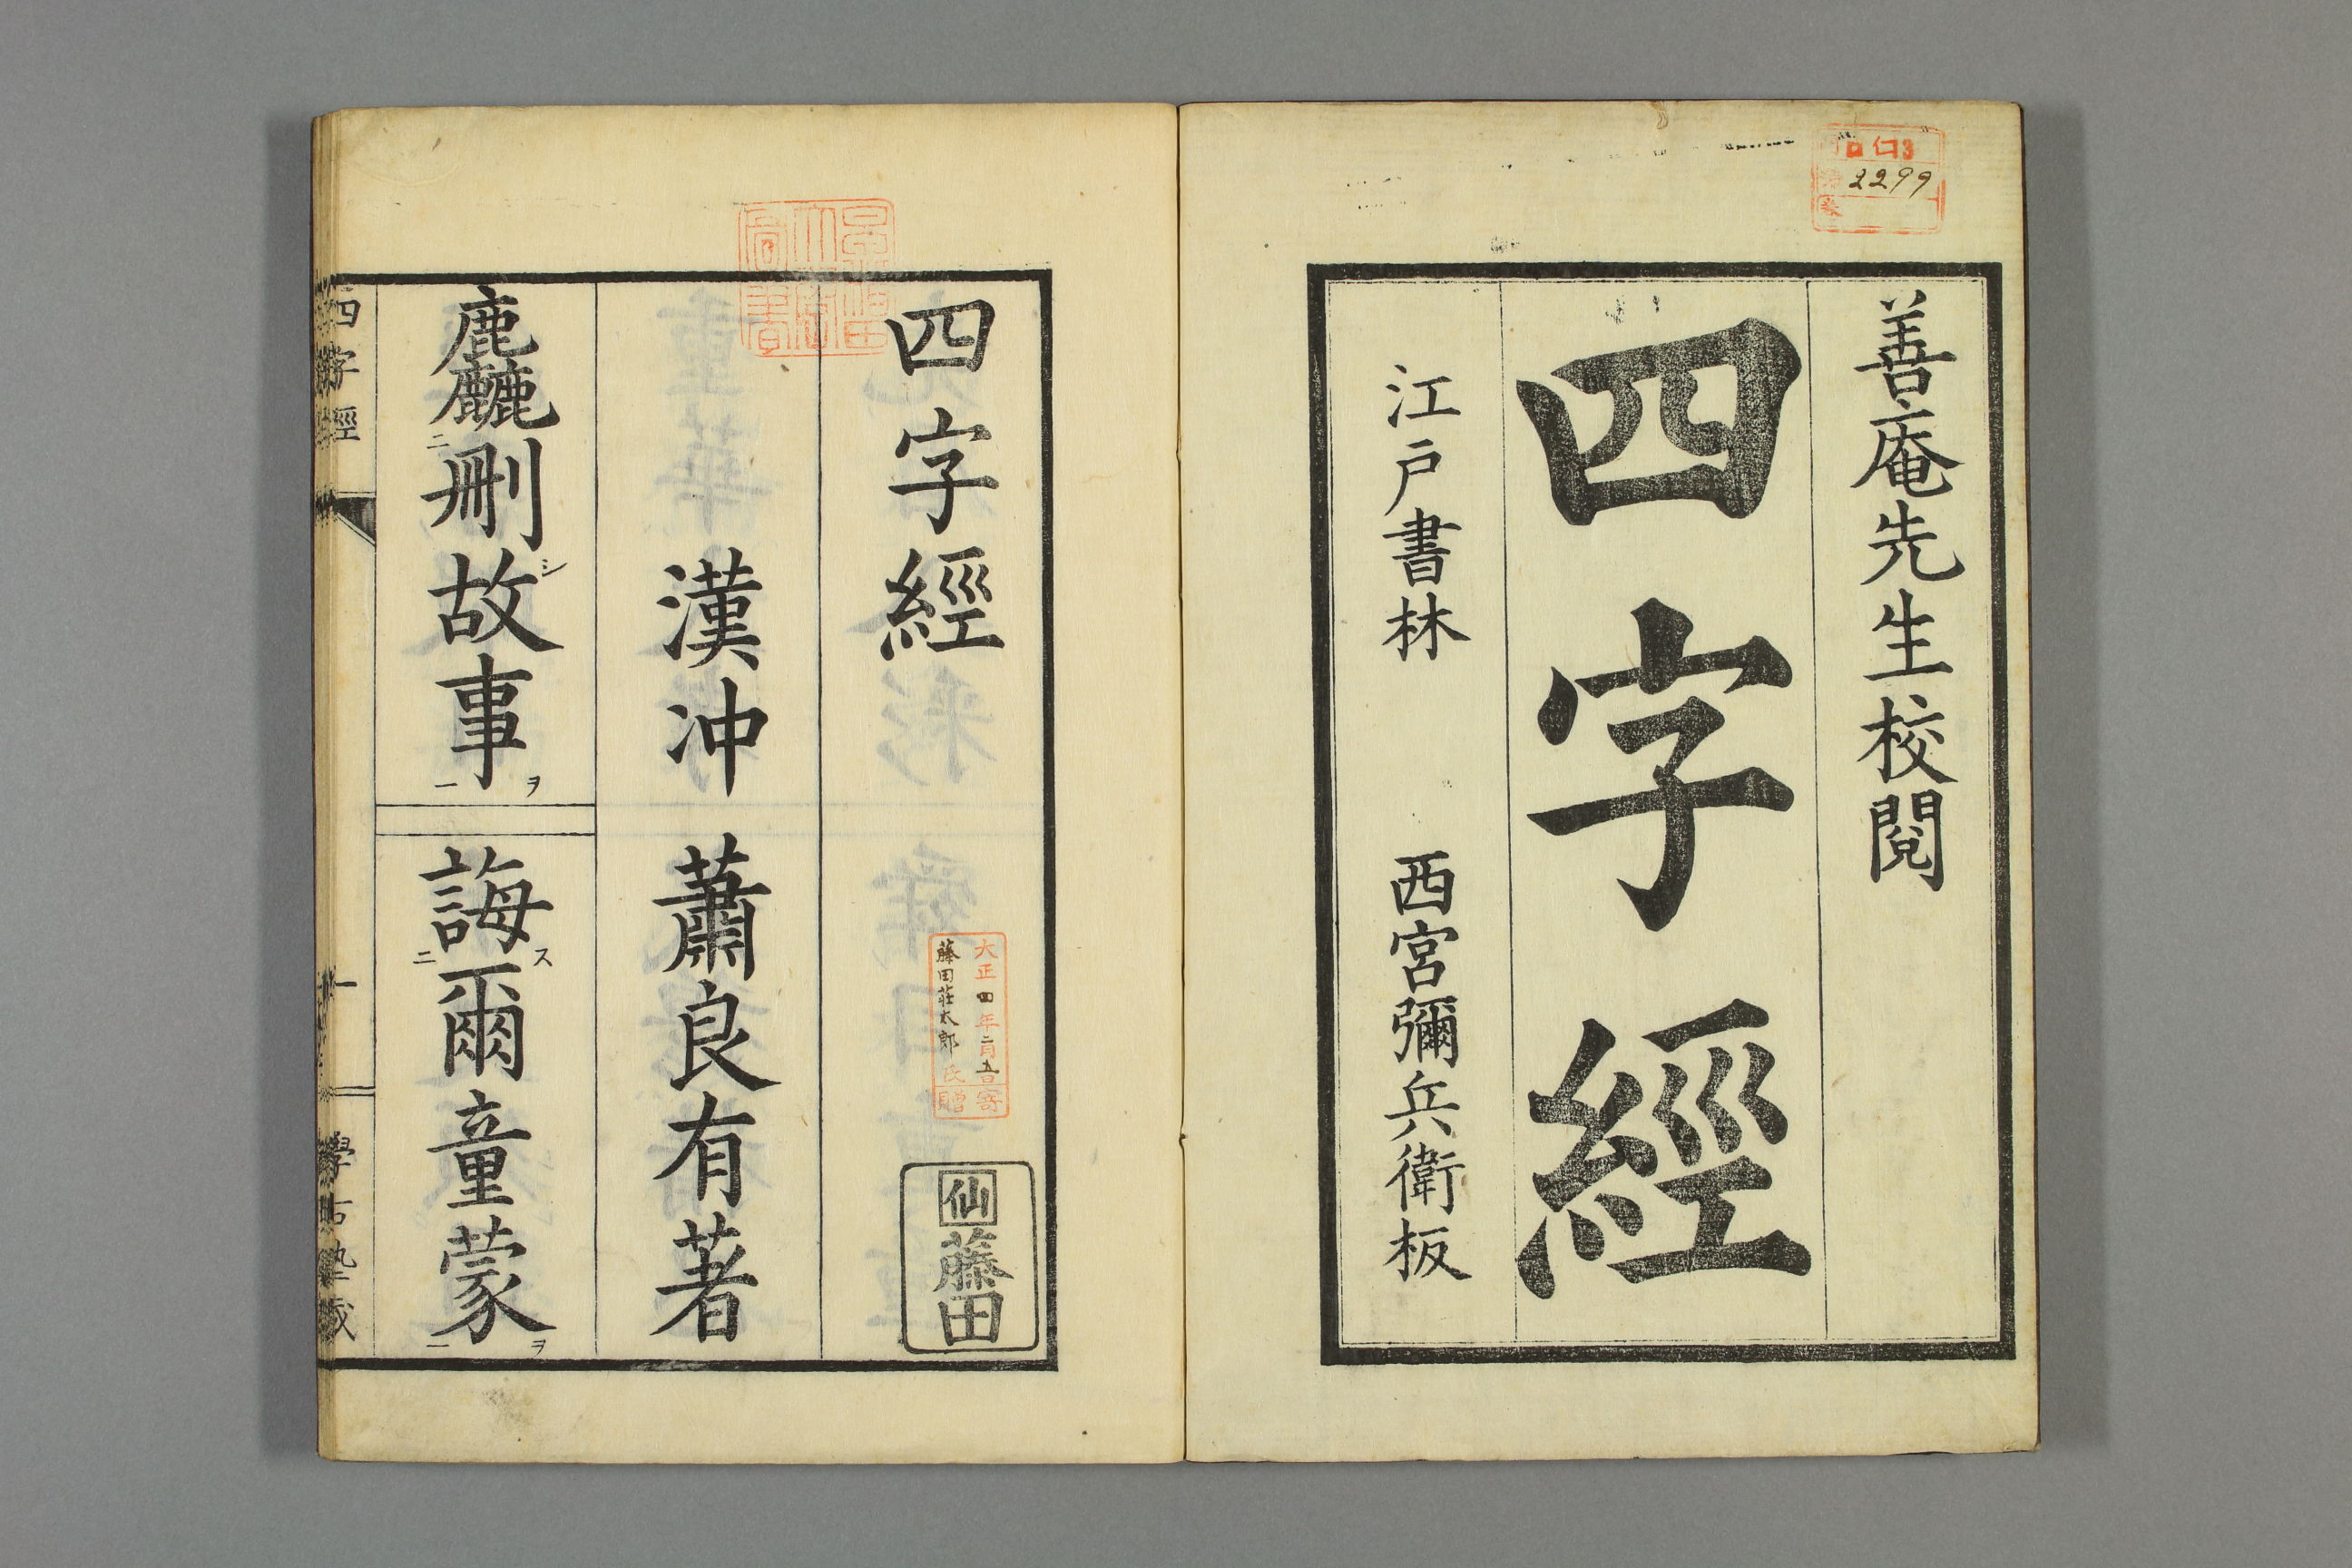 善庵先生校閱
四字經
江戸書林　西宮彌兵衛板
2299
四字經
大正四年二月五日寄贈
藤田荘太郎氏
仙藤田
漢冲　蕭良有著
麤刪シ二故事ヲ一　誨ス二爾童蒙ヲ一
四字經　一